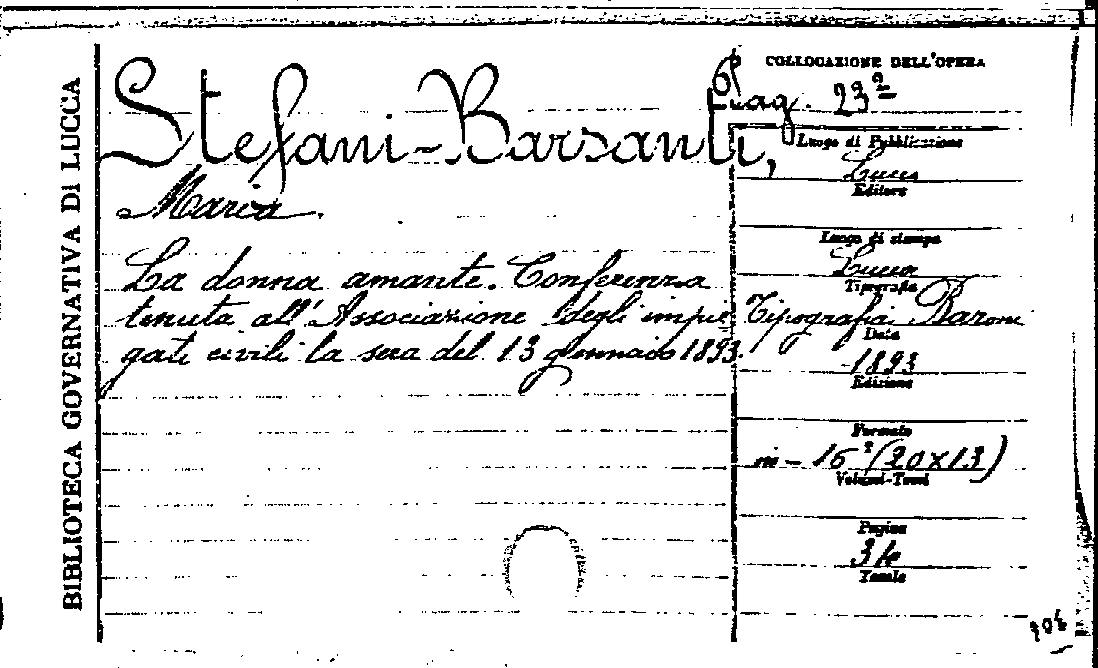 BIBLIOTECA GOVERNATIVA DI LUCCA
Stefani-Barsanti,
Maria.
La donna amante. Conferenza
tenuta all'Associazione degli impie
gati civili la sera del 13 gennaio 1893.
COLLOCAZIONE DELL'OPERA
23
Luogo di Pubblicazione
Lucca
Editore
Luogo di stampa
Lucca
Tipografia
Tipografia Baroni
Data
1893
Edizione
Formato
in-16° (20x13)
Volumi-Tomi
Pagine
34
Tavole